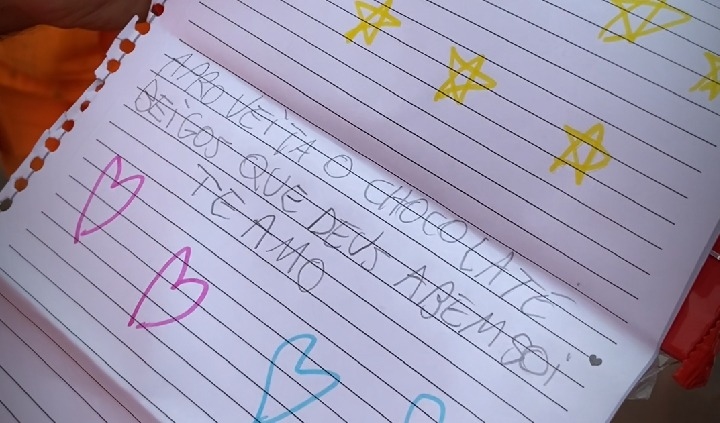 APROVEITA O CHOCOLATE
BEIGOS QUE DEUS ABEMSOI
TE AMO